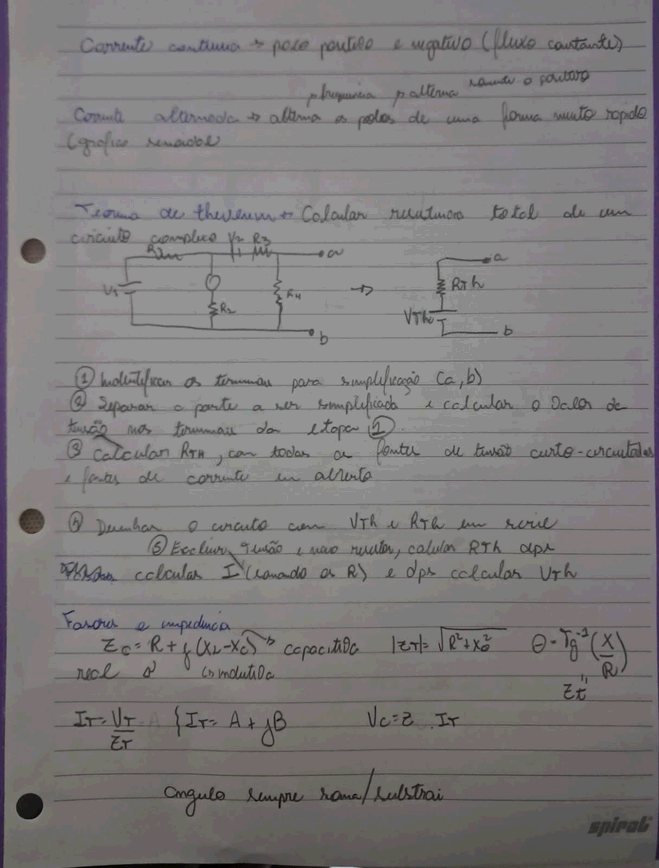 Corrente continua → polo positivo e negativo (fluxo constante)
p/frequencia p/alterna
Corrente alternada → alterna os polos de uma forma muito rapida
(grafico senoidal
Teorema de thevenin → Calcular resistencia total de um
circuito complexo
V2 R3
a
V1
R2
R4
→
b
a
RTh
VTh
b
① Indentificar os terminais para simplificação (a, b)
② Separar a parte a ser simplificada e calcular o valor de
tensão nos terminais da etapa ①
③ Calcular RTH, com todas as fontes de tensão curto-circuitadas
e fontes de corrente em aberto
④ Desenhar o circuito com VTh e RTh em serie
⑤ Excluir Tensão e nao resistor, calcular RTh dps
calcular I (somando os R) e dps calcular VTh
Fasores e impedancia
= R + j(XL-XC) → capacitiva
real indutiva
|ZT| =
θ = Tg⁻¹(X/R)
Zt
IT = VT/ZT
{IT = A + jB
VC = Z . IT
angulo sempre soma/subtrai
spiral